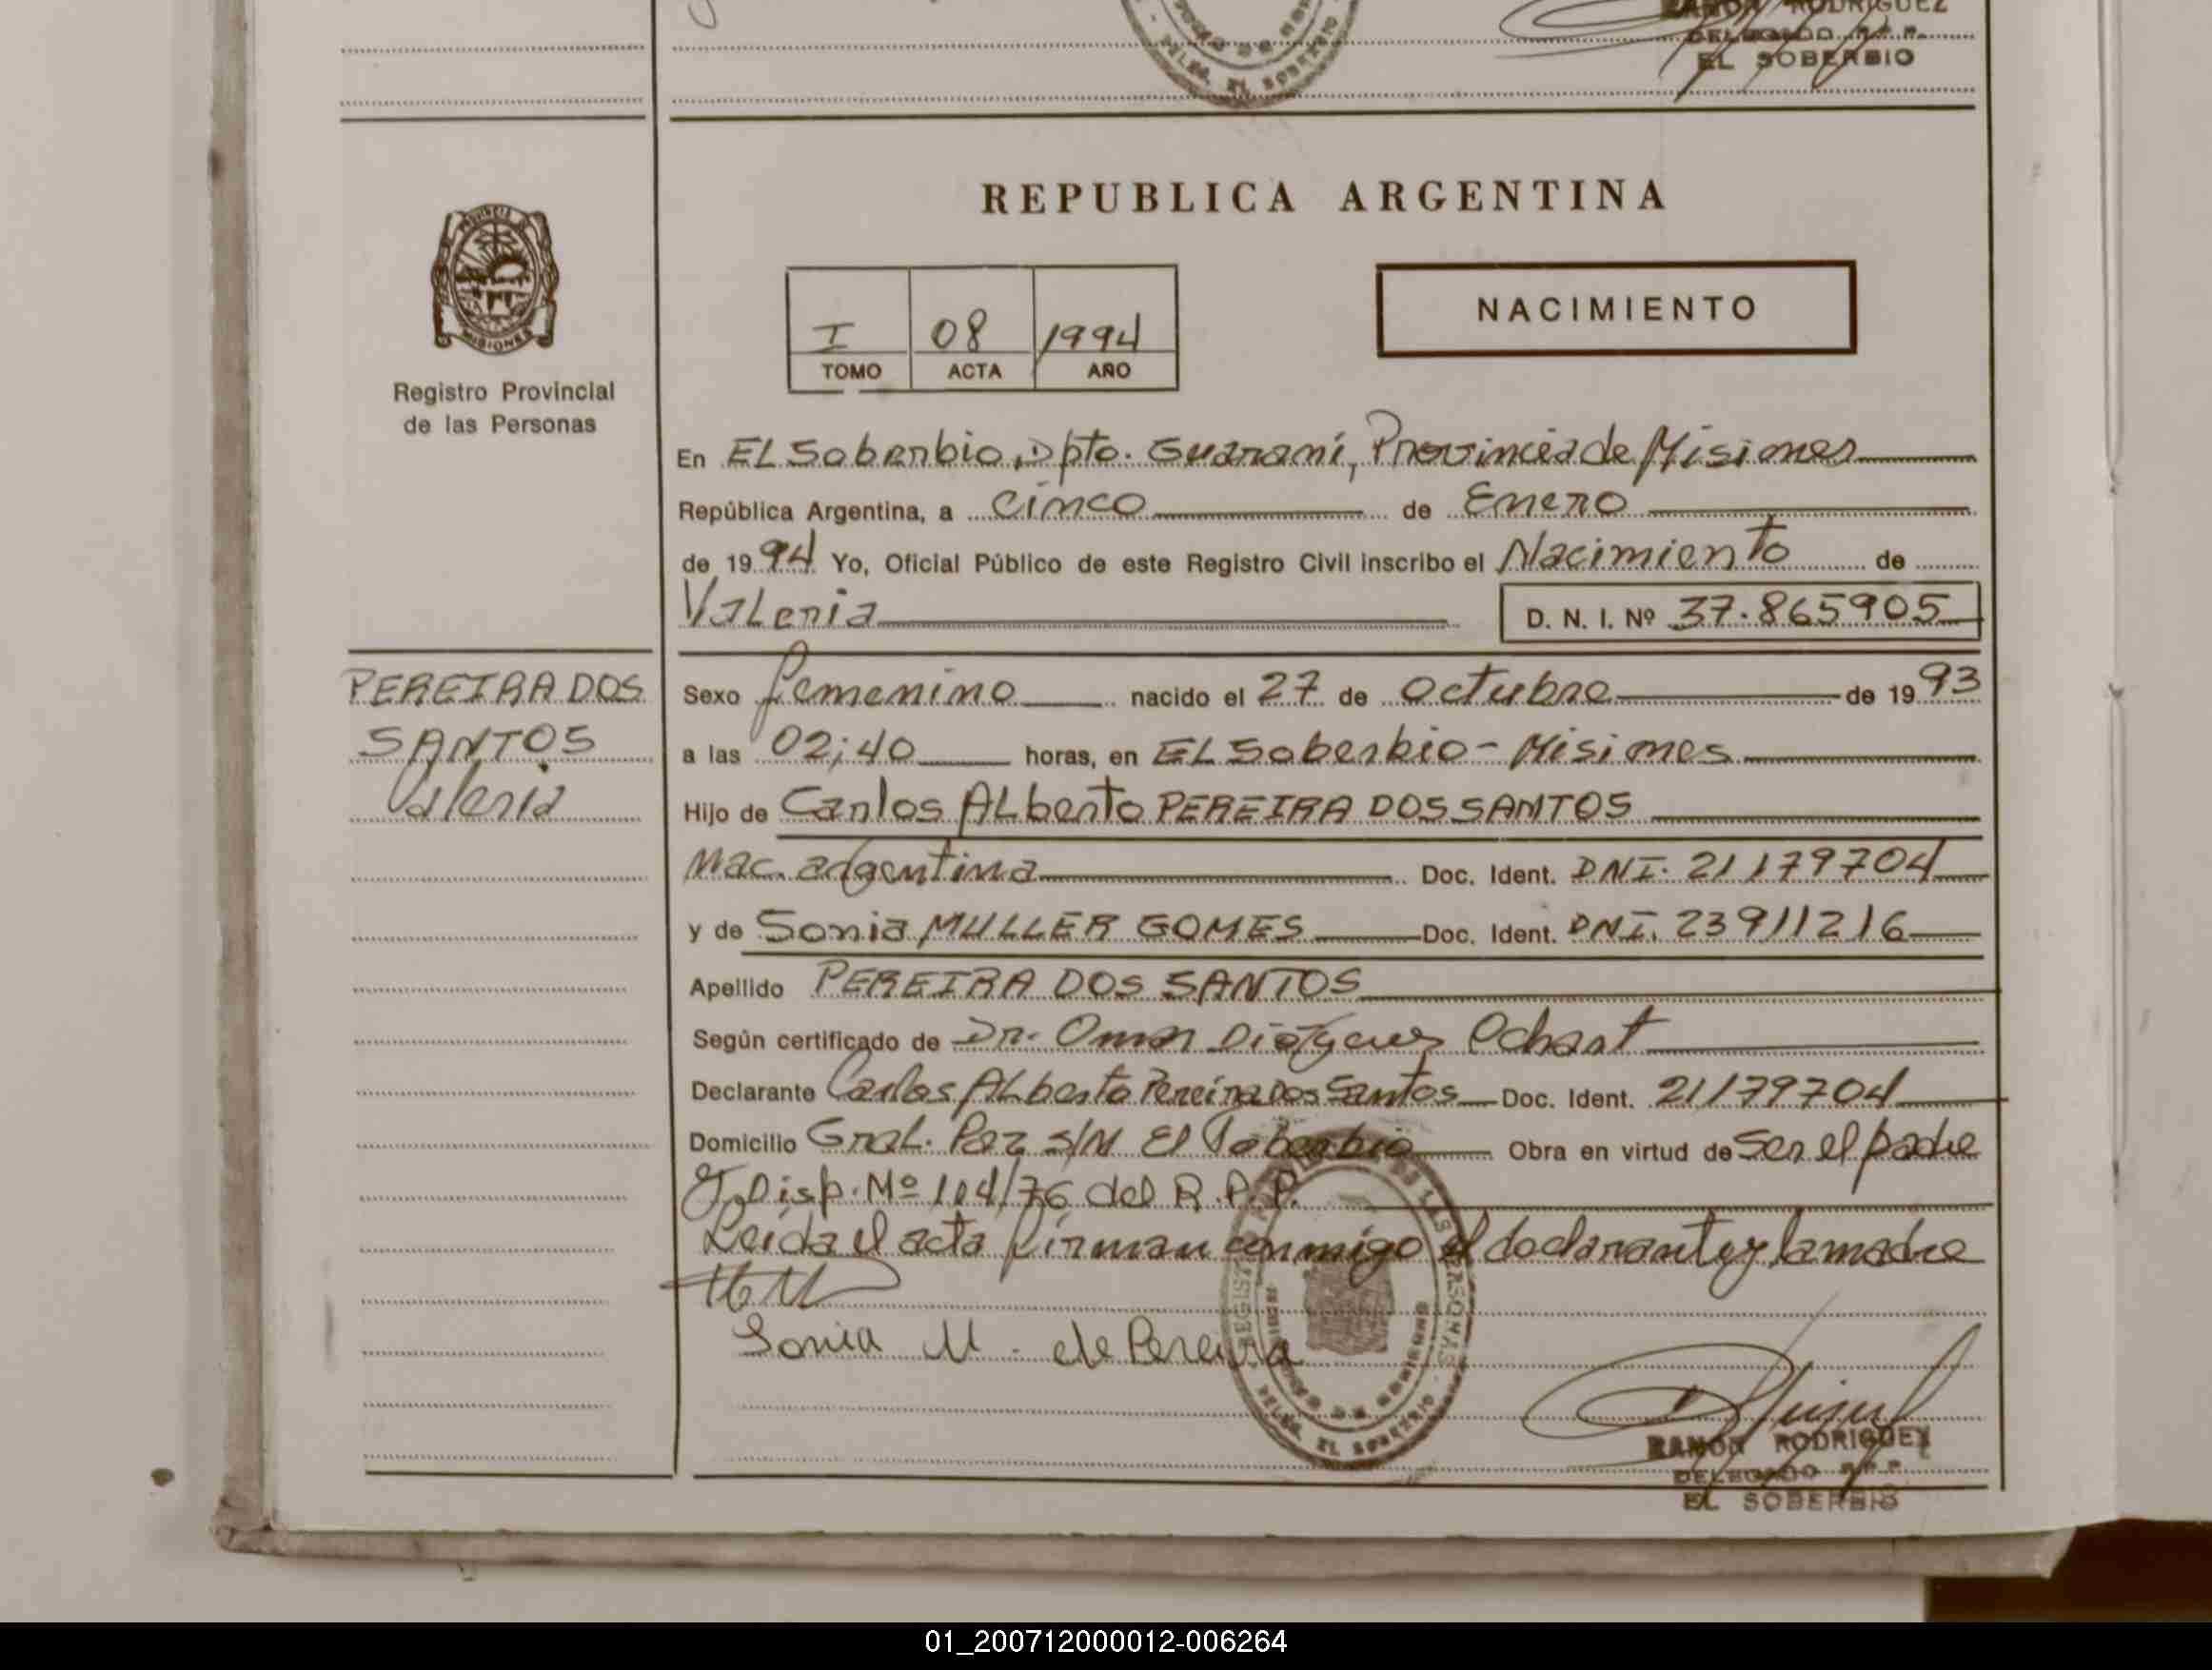 RAMON RODRIGUEZ
DELEGADO R.P.P.
EL SOBERBIO
DELEG. EL SOBERBIO
REPUBLICA ARGENTINA
PROVINCIA
MISIONES
Registro Provincial
de las Personas
NACIMIENTO
I 08 1994
TOMO ACTA AÑO
En EL Soberbio, Dpto. Guaraní, Provincia de Misiones
República Argentina, a cinco de Enero
de 1994 Yo, Oficial Público de este Registro Civil inscribo el Nacimiento de
Valeria D. N. I. Nº 37.865905
PEREIRA DOS
SANTOS
Valeria
Sexo femenino nacido el 27 de octubre de 1993
a las 02;40 horas, en EL Soberbio - Misiones
Hijo de Carlos ALberto PEREIRA DOS SANTOS
Nac. argentina Doc. Ident. DNI. 21179704
y de Sonia MULLER GOMES Doc. Ident. DNI. 23911216
Apellido PEREIRA DOS SANTOS
Según certificado de Dr. Omar
Declarante Carlos ALberto Pereira Dos Santos Doc. Ident. 21179704
Domicilio Gral. Paz S/N El Soberbio Obra en virtud de Ser el padre
y Disp. Nº 104/76 del R.P.P.
Leida el acta firman conmigo el declarante y la madre
Sonia M. de Pereira
REGISTRO PROVINCIAL DE LAS PERSONAS
DELEG. EL SOBERBIO
RAMON RODRIGUEZ
DELEGADO R.P.P.
EL SOBERBIO
01_200712000012-006264